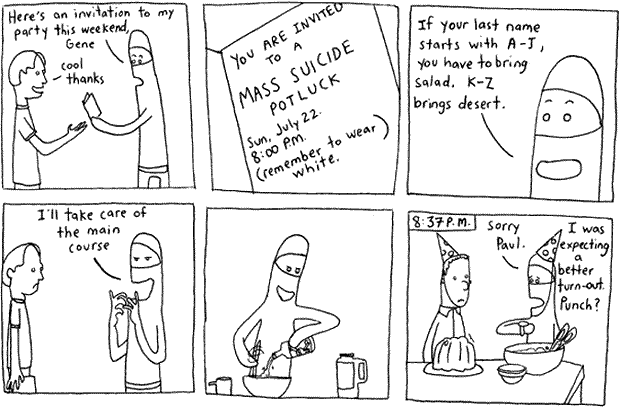 Here's an invitation to my
party this weekend,
Gene
cool
thanks
YOU ARE INVITED
TO A
MASS SUICIDE
POTLUCK
Sun, July 22.
8:00 P.M.
(remember to wear)
white.
If your last name
starts with A-J,
you have to bring
salad. K-Z
brings desert.
I'll take care of
the main
course
8:37 P.M.
Sorry
Paul.
I was
expecting
a
better
turn-out.
Punch?